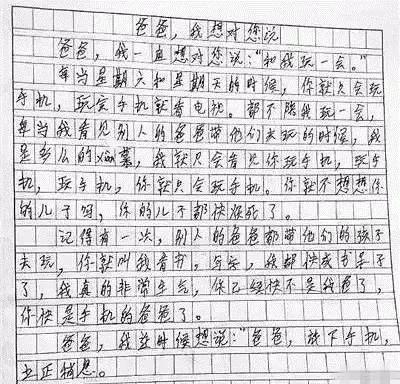 爸爸,我想对您说
爸爸,我一直想对您说:“和我玩一会。”
每当星期六和星期天的时候,你就只会玩
手机,玩完手机就看电视。都不陪我玩一会,
每当我看见别人的爸爸带他们去玩的时候,我
是多么的xian慕,我就只会看见你玩手机,玩手
机,玩手机,你就只会玩手机。你就不想想你
的儿子吗,你的儿子都快淚死了。
记得有一次,别人的爸爸都带他们的孩子
去玩,你就叫我看书。写字,我都快成书呆子
了,我真的非常生气,你已经快不是我爸了,
你快是手机的爸爸了。
爸爸,我这时候想说:“爸爸,放下手机,
少正消息。